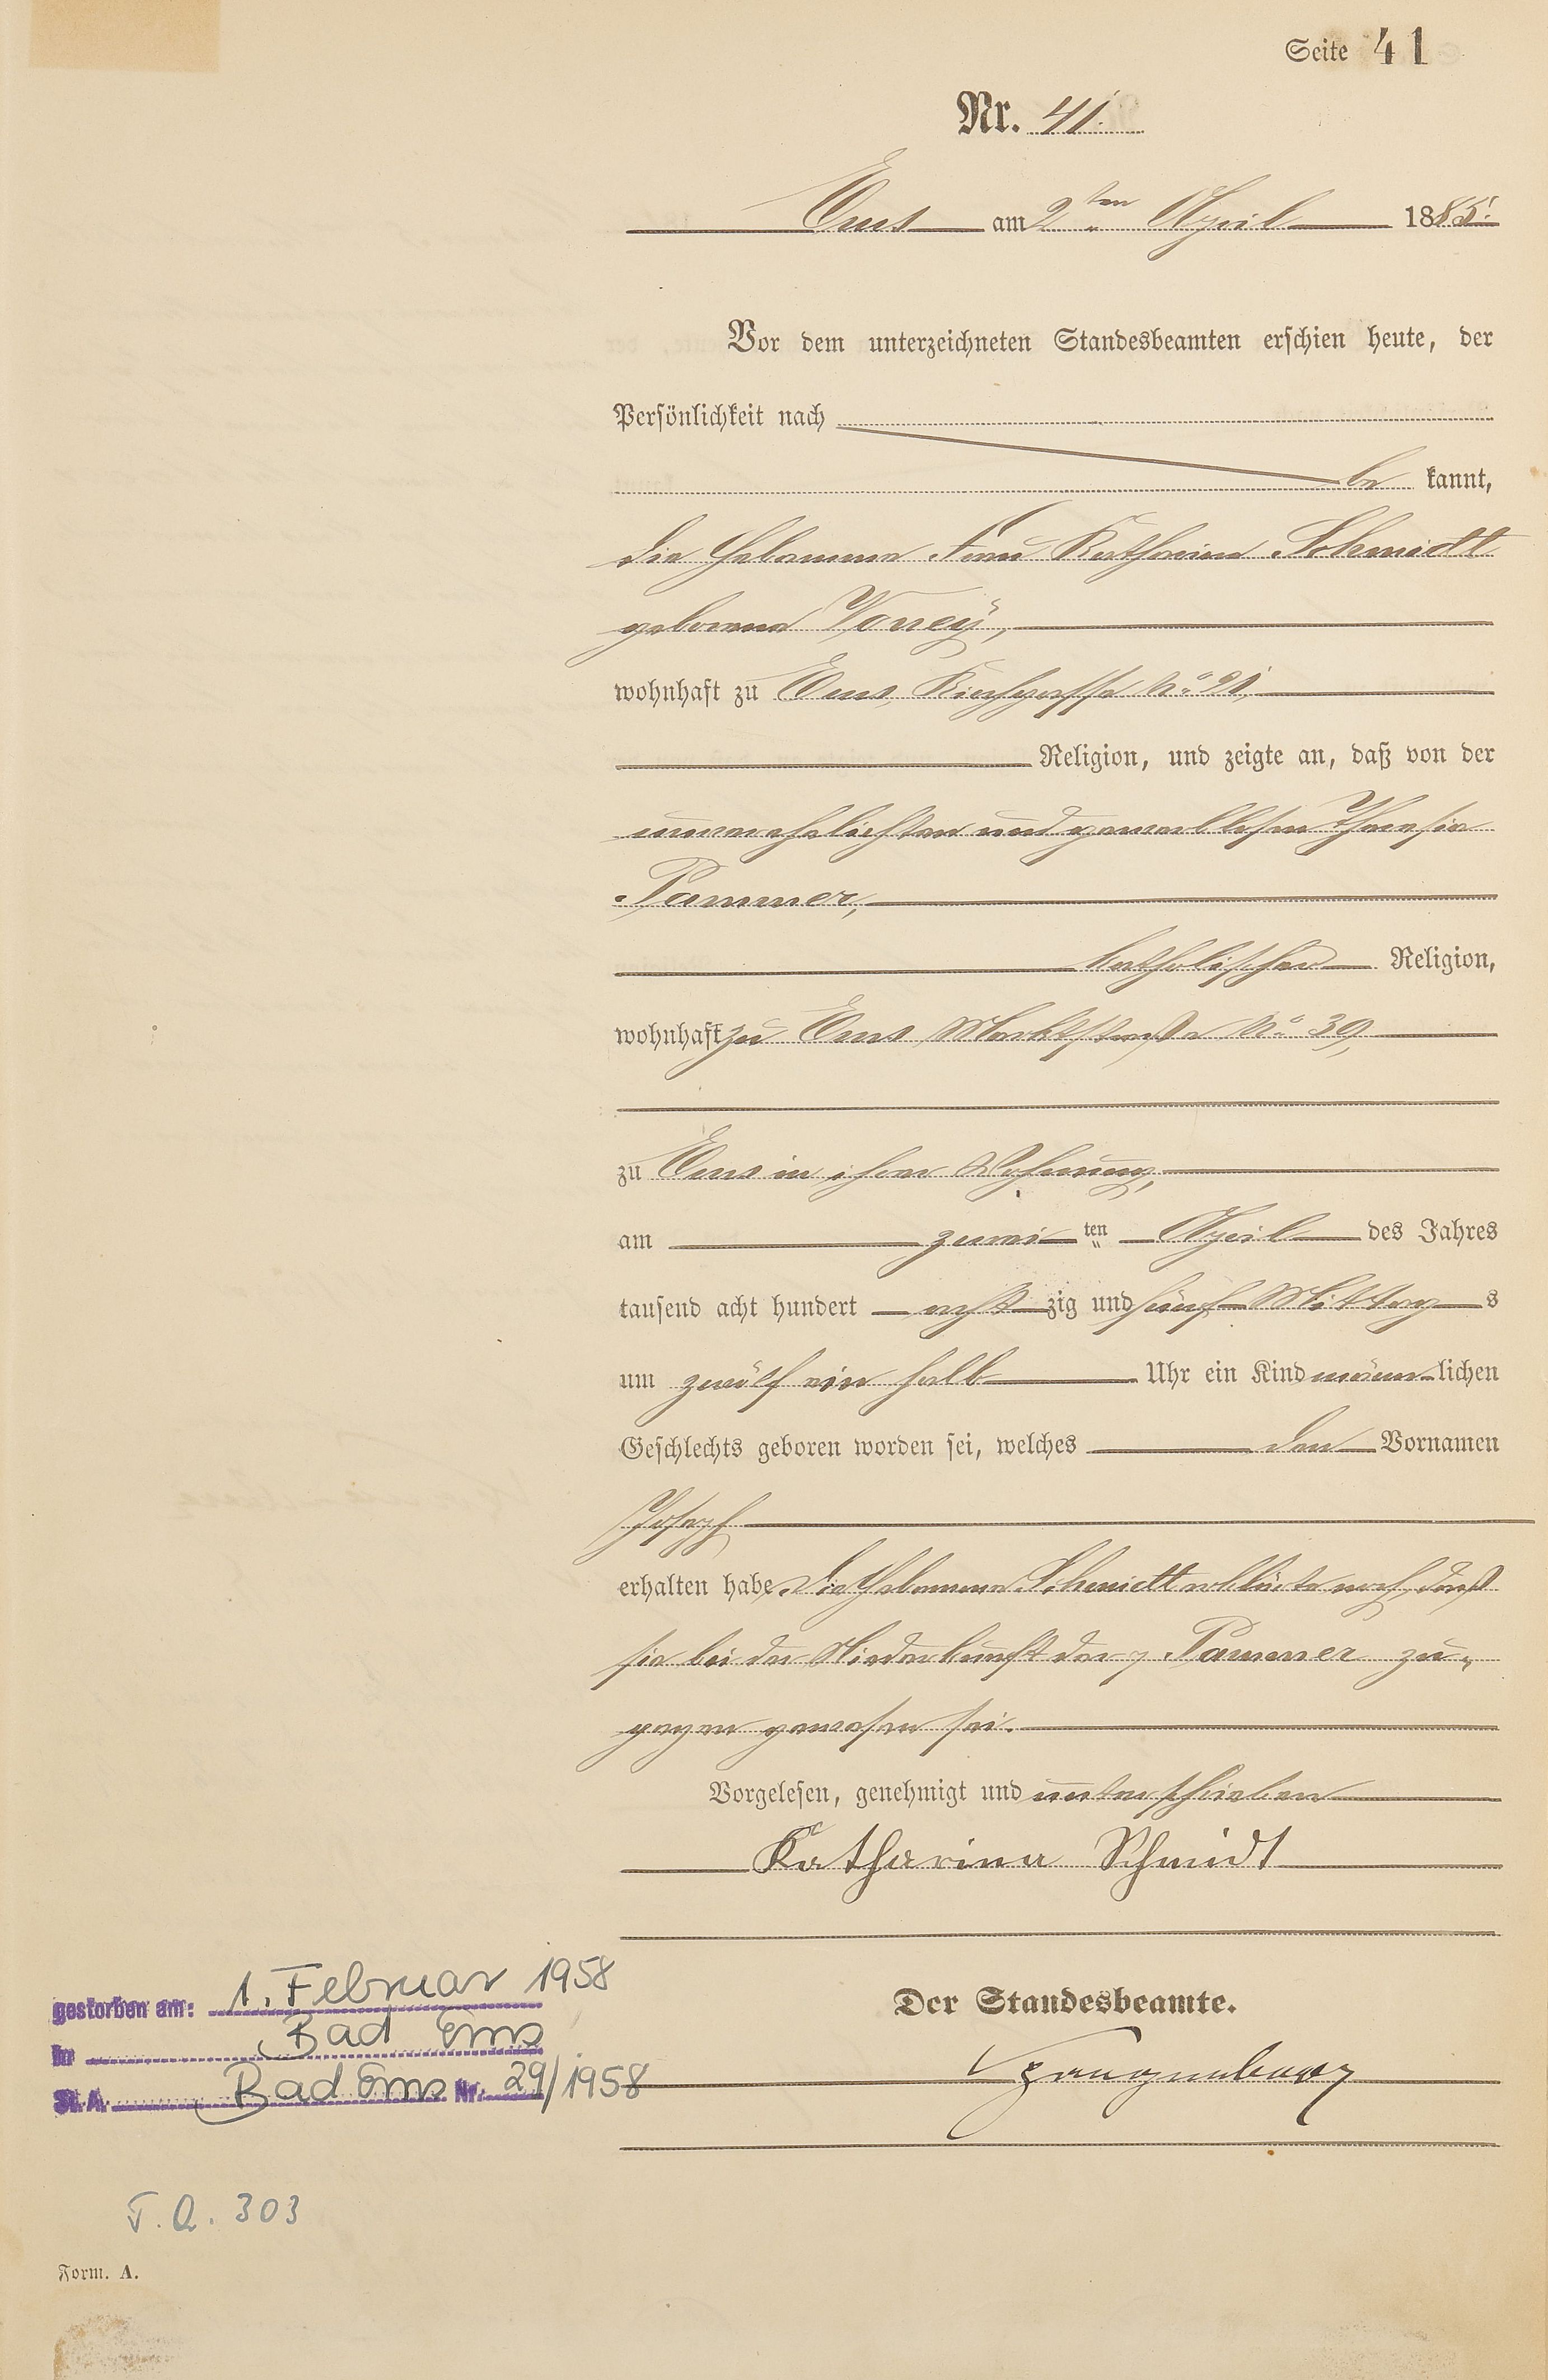 Seite 41
Nr. 41.
Ems am 2ten April 1885.
Vor dem unterzeichneten Standesbeamten erschien heute, der
Persönlichkeit nach
be kannt,
die Hebamme Frau Katharina Schmidt
geborene
wohnhaft zu Ems, Kirchgasse No 21,
Religion, und zeigte an, daß von der
unverehelichten und gewerblosen Theresia
Pammer,
katholischer Religion,
wohnhaft zu Ems, Marktstraße No 39,
zu Ems in ihrer Wohnung,
am zwei ten April des Jahres
tausend acht hundert acht zig und fünf Mittag s
um zwölf ein halb Uhr ein Kind männ lichen
Geschlechts geboren worden sei, welches den Vornamen
Joseph
erhalten habe. Die Hebamme Schmidt erklärte noch, daß
sie bei der Niederkunft der p. Pammer zu„
gegen gewesen sei.
Vorgelesen, genehmigt und unterschrieben
Katharina Schmidt
Der Standesbeamte.
Spangenberg
gestorben am: 1. Februar 1958
in Bad Ems
St. A. Bad Ems Nr. 29/1958
T.Q. 303
Form. A.